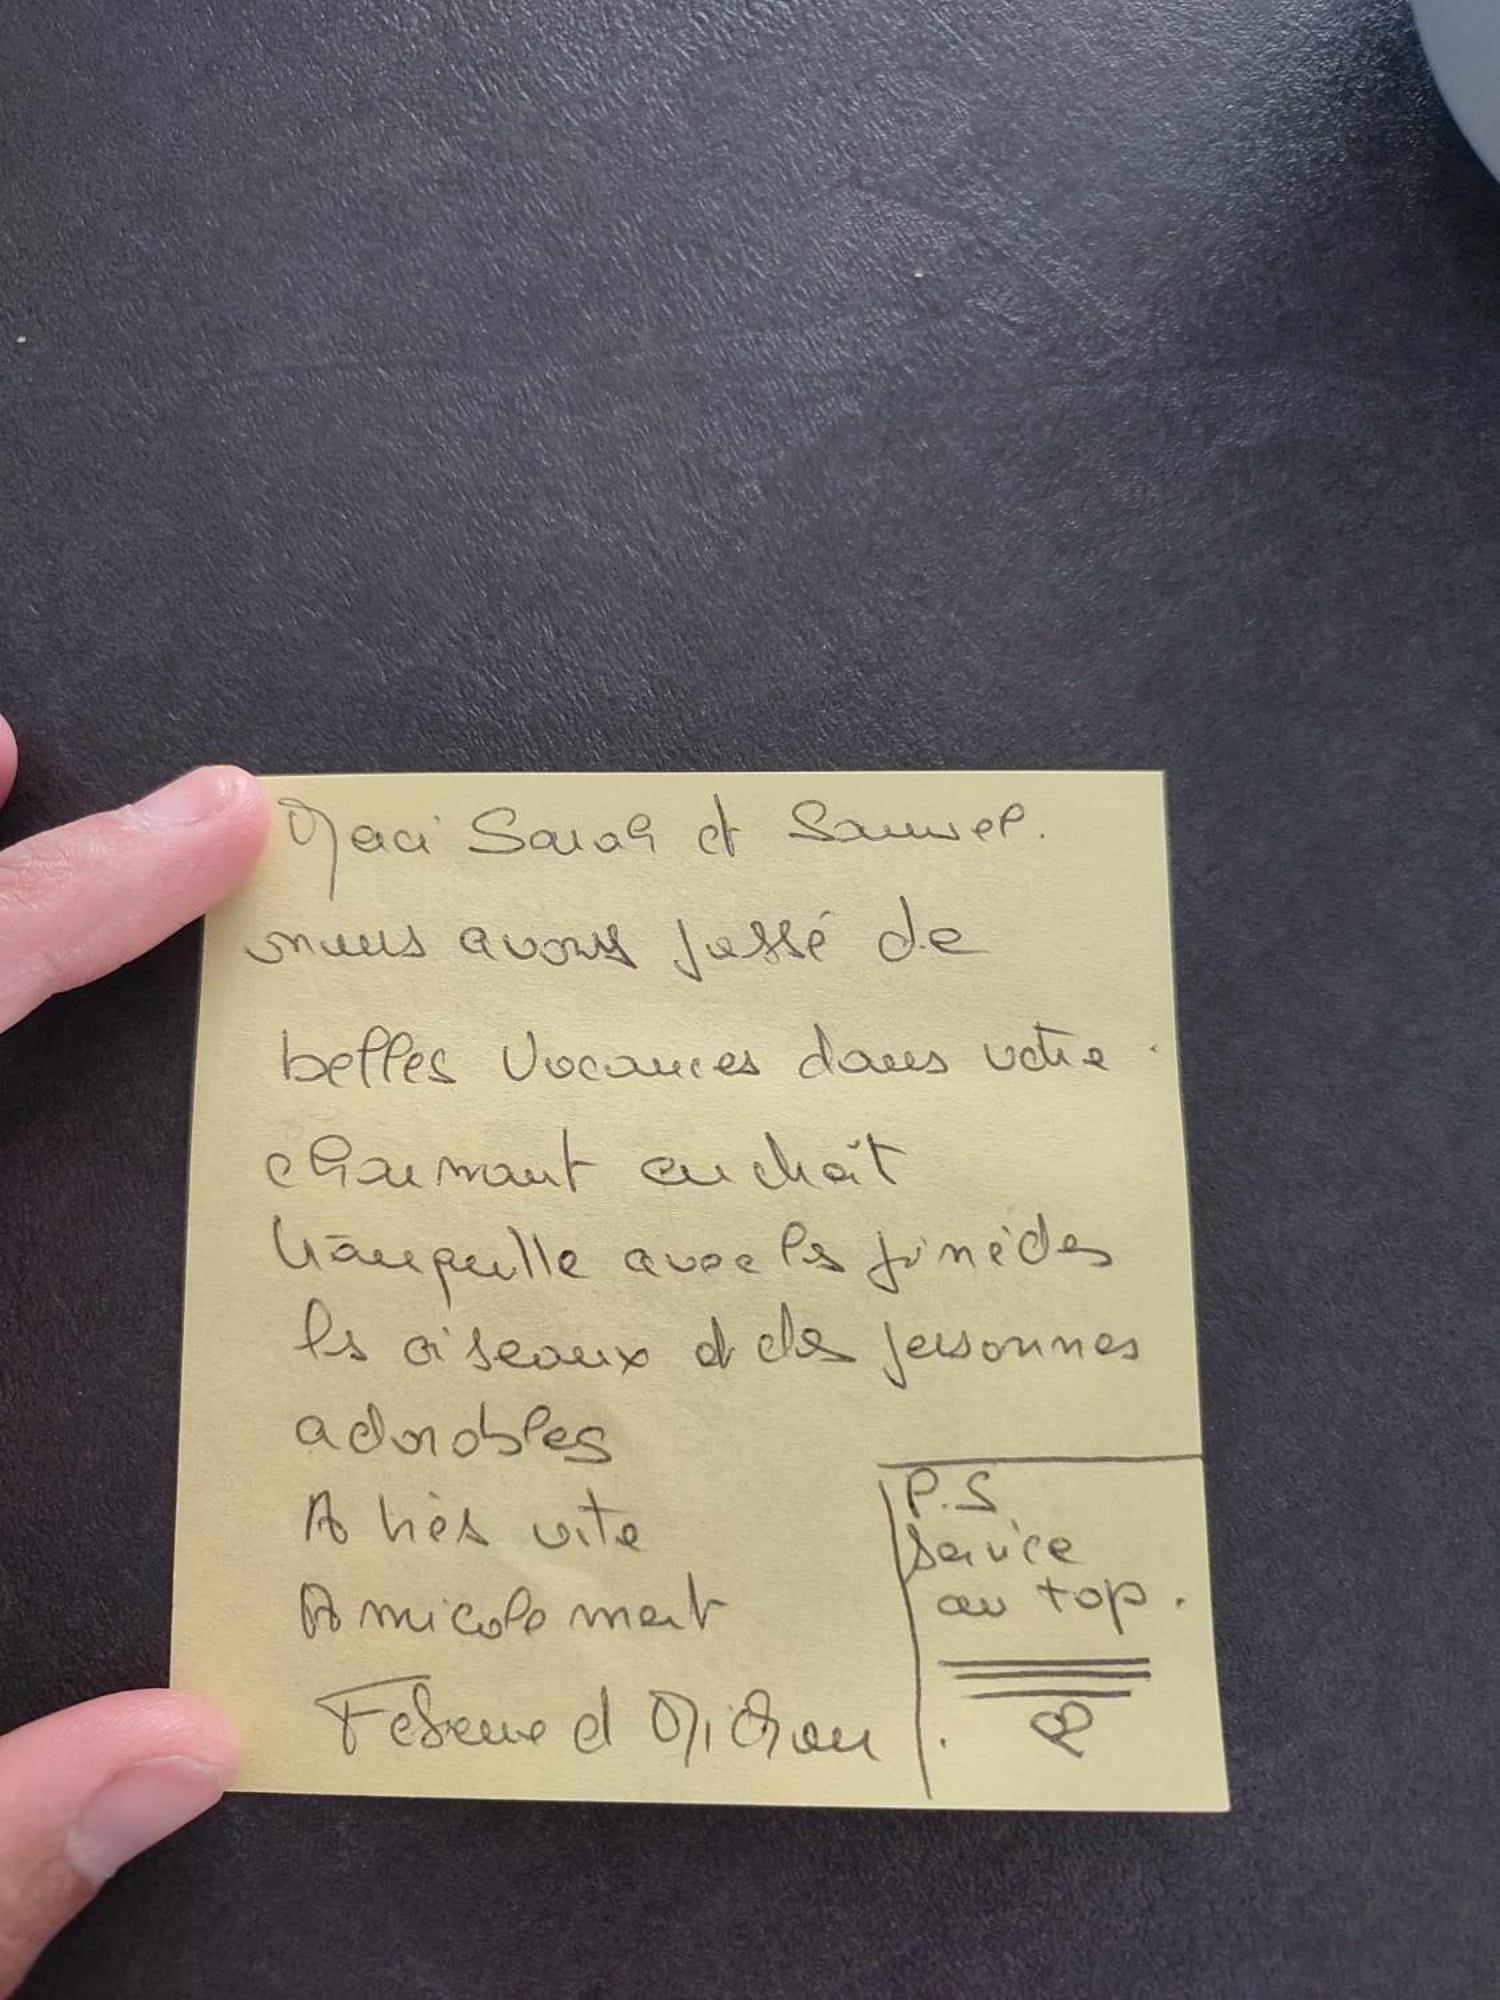 Merci Sarah et Samuel.
nous avons passé de
belles vacances dans votre
charmant endroit
tranquille avec les pinèdes
les oiseaux et des personnes
adorables
A très vite
Amicalement
et
P.S
Service
au top.